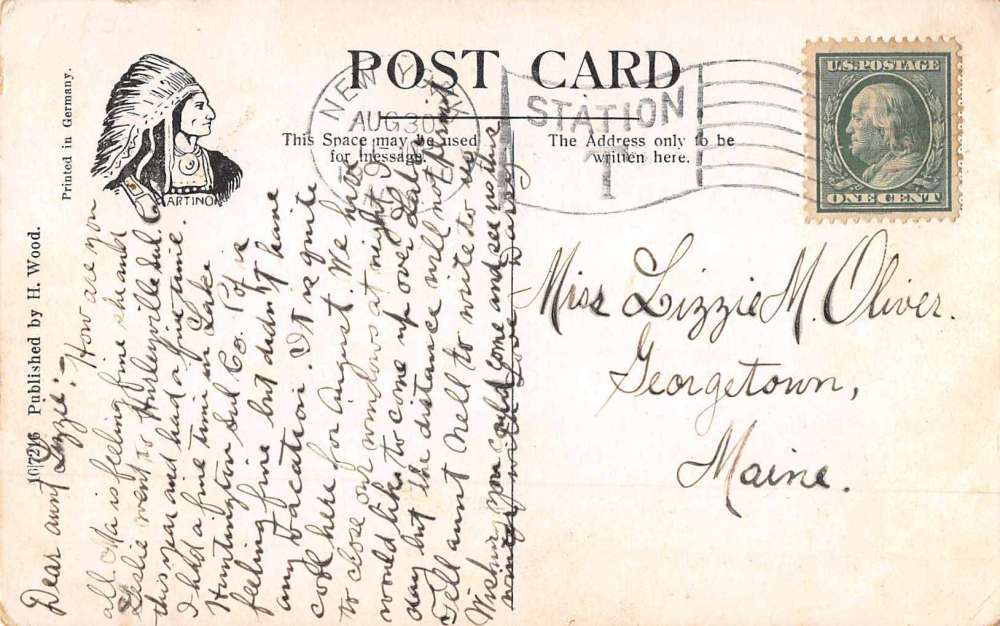 POST CARD
NEW Y
AUG 30
STATION
U.S. POSTAGE
ONE CENT
This Space may be used
for message.
The Address only to be
written here.
Printed in Germany.
ARTINO
Published by H. Wood.
Dear Aunt Lizzie:- How are you
all. Ma is feeling fine she and
Leslie went to Hurleyville Sul. Co
this year and had a fine time.
I had a fine time in Lake
Huntington Sul. Co. Pop is
feeling fine but didn't have
any vacation. It is quite
cool here for August We have
to close our windows at night I
would like to come up over Labor
day but the distance will not permit
Tell aunt Nell to write to us
Wishing you could come and see us this
winter, with Love
Miss Lizzie M. Oliver.
Georgetown,
Maine.